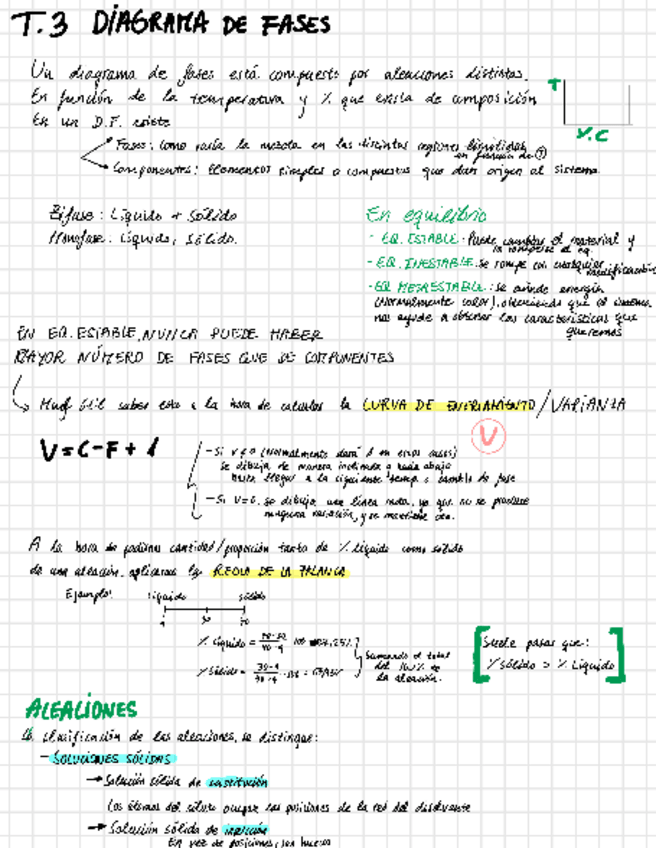 T.3 DIAGRAMA DE FASES
Un diagrama de fases está compuesto por aleaciones distintas.
En función de la temperatura y % que exista de composición
En un D.F. existe
T
V.C
Fases: como varía la mezcla en las distintas regiones
en función de T
Componentes: Elementos simples o compuestos que dan origen al sistema
Bifase: Líquido + Sólido
Monofase: Líquido, Sólido.
En equilibrio
- EQ. ESTABLE: Puede cambiar el material y
- EQ. INESTABLE: se rompe con cualquier modificación
- EQ METAESTABLE: se añade energía
(normalmente calor), que el sistema
nos ayude a observar las características que
queremos
EN EQ. ESTABLE, NUNCA PUEDE HABER
MAYOR NÚMERO DE FASES QUE DE COMPONENTES
Muy útil saber esto a la hora de calcular la CURVA DE ENFRIAMIENTO / VARIANZA
V
V = C - F + 1
- Si V≠0 (Normalmente dará 1 en esos casos)
se dibuja de manera inclinada hacia abajo
hasta llegar a la siguiente temp. o cambio de fase
- Si V=0, se dibuja una línea recta, ya que no se produce
ninguna variación, y se mantiene cte.
A la hora de pedirnos cantidad/proporción tanto de % líquido como sólido
de una aleación, aplicamos la REGLA DE LA PALANCA
Ejemplo: líquido sólido
% Líquido =
% Sólido =
Sumando el total
del 100% de
la aleación.
Suele pasar que:
% Sólido > % Líquido
ALEACIONES
clasificación de las aleaciones, se distingue:
- SOLUCIONES SÓLIDAS
→ Solución sólida de sustitución
Los átomos del soluto ocupan las posiciones de la red del disolvente
→ Solución sólida de inserción
En vez de posiciones, son huecos